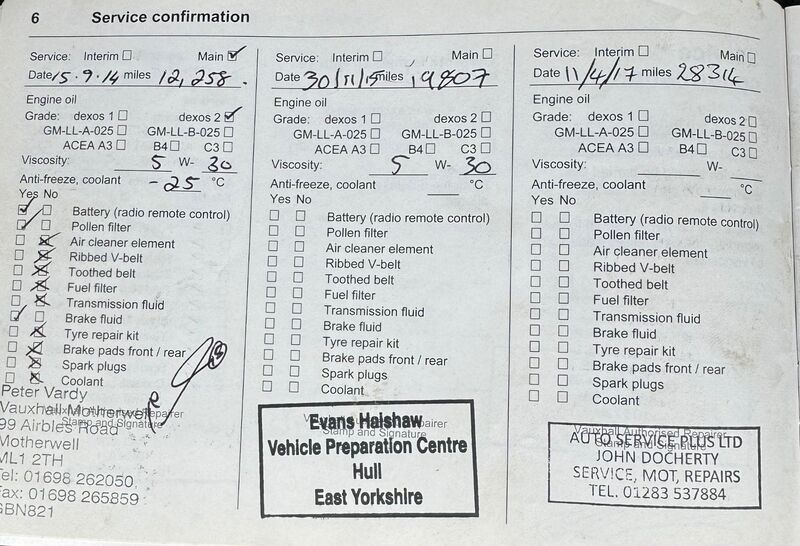 6 Service confirmation
Service: Interim Main
Date 15.9.14 miles 12,258.
Engine oil
Grade: dexos 1 dexos 2
GM-LL-A-025 GM-LL-B-025
ACEA A3 B4 C3
Viscosity: 5 W- 30
Anti-freeze, coolant -25 °C
Yes No
Battery (radio remote control)
Pollen filter
Air cleaner element
Ribbed V-belt
Toothed belt
Fuel filter
Transmission fluid
Brake fluid
Tyre repair kit
Brake pads front / rear
Spark plugs
Coolant
Vauxhall Authorised Repairer
Stamp and Signature
Peter Vardy
Vauxhall Motherwell
99 Airbles Road
Motherwell
ML1 2TH
Tel: 01698 262050
Fax: 01698 265859
GBN821
Service: Interim Main
Date 30/11/15 miles 19807
Engine oil
Grade: dexos 1 dexos 2
GM-LL-A-025 GM-LL-B-025
ACEA A3 B4 C3
Viscosity: 5 W- 30
Anti-freeze, coolant °C
Yes No
Battery (radio remote control)
Pollen filter
Air cleaner element
Ribbed V-belt
Toothed belt
Fuel filter
Transmission fluid
Brake fluid
Tyre repair kit
Brake pads front / rear
Spark plugs
Coolant
Stamp and Signature
Evans Halshaw
Vehicle Preparation Centre
Hull
East Yorkshire
Service: Interim Main
Date 11/4/17 miles 28314
Engine oil
Grade: dexos 1 dexos 2
GM-LL-A-025 GM-LL-B-025
ACEA A3 B4 C3
Viscosity: W-
Anti-freeze, coolant °C
Yes No
Battery (radio remote control)
Pollen filter
Air cleaner element
Ribbed V-belt
Toothed belt
Fuel filter
Transmission fluid
Brake fluid
Tyre repair kit
Brake pads front / rear
Spark plugs
Coolant
Vauxhall Authorised Repairer
Stamp and Signature
AUTO SERVICE PLUS LTD
JOHN DOCHERTY
SERVICE, MOT, REPAIRS
TEL. 01283 537884